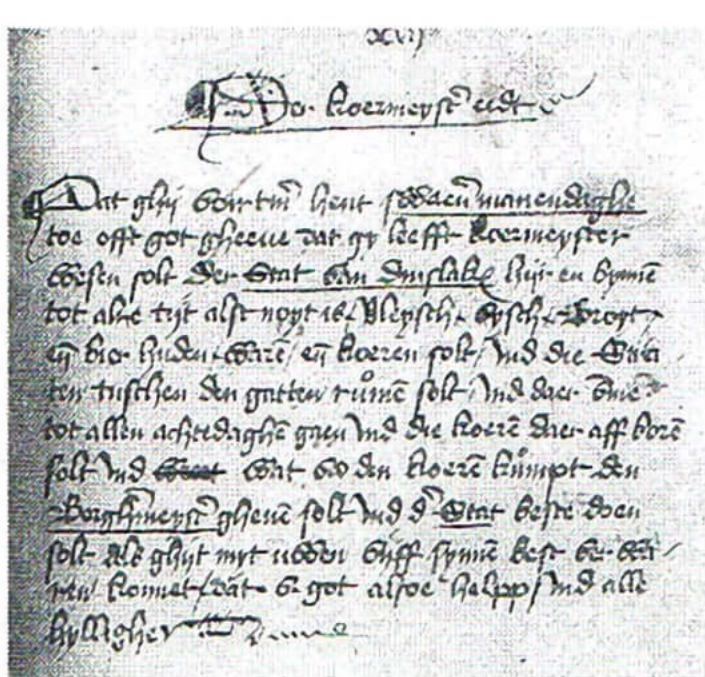 xvij
Der koermeyst' eidt
Dat ghij van tm̄ hent manendaghe
toe offt got gheeue dat gy leefft koermeyster
wesen solt der Stat van dinslakē hijr en bynnē
tot alre tijt alst noyt is vleysch vysch broyt
eñ bier huden warē eñ koeren solt Ind die Stra
ten tusschen den gatten rumē solt Ind daer vme
tot allen achtedaghē gaen Ind die koerē daer aff borē
solt Ind wat vā den koerē kumpt den
Borghmeyst' gheuē solt Ind d' Stat beste doen
solt Als ghijt myt uwen vijff synnē best ver waa
ren konnet dat v got alsoe helpp Ind alle
hyllighen